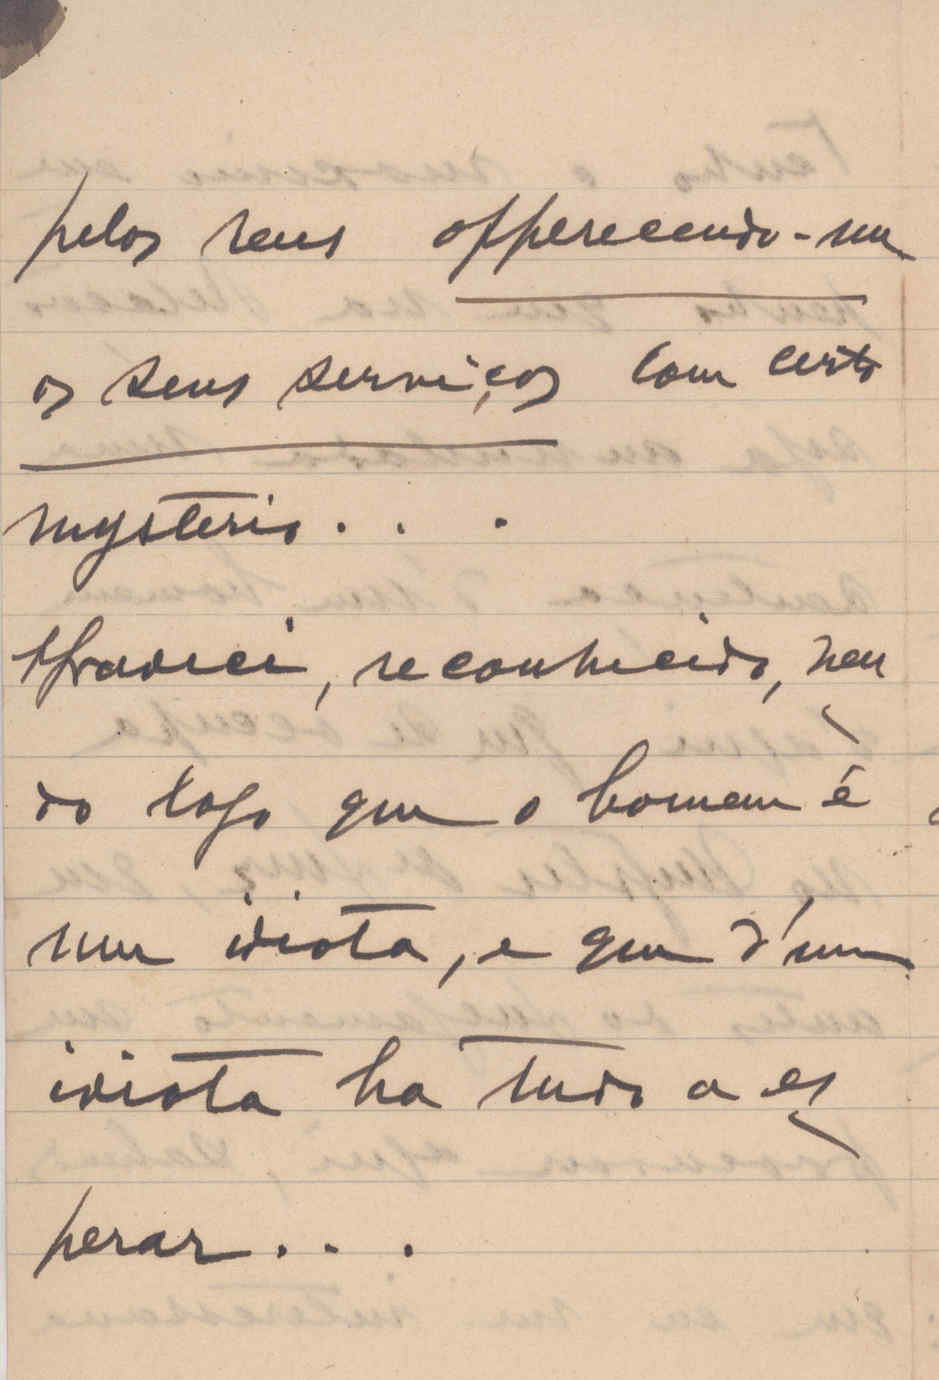 pelos seus offerecendo-me
os seus serviços com certo
mysterio...
Agradeci, reconhecido, ven
do logo que o homem é
um idiota, e que d'um
idiota ha tudo a es
perar...